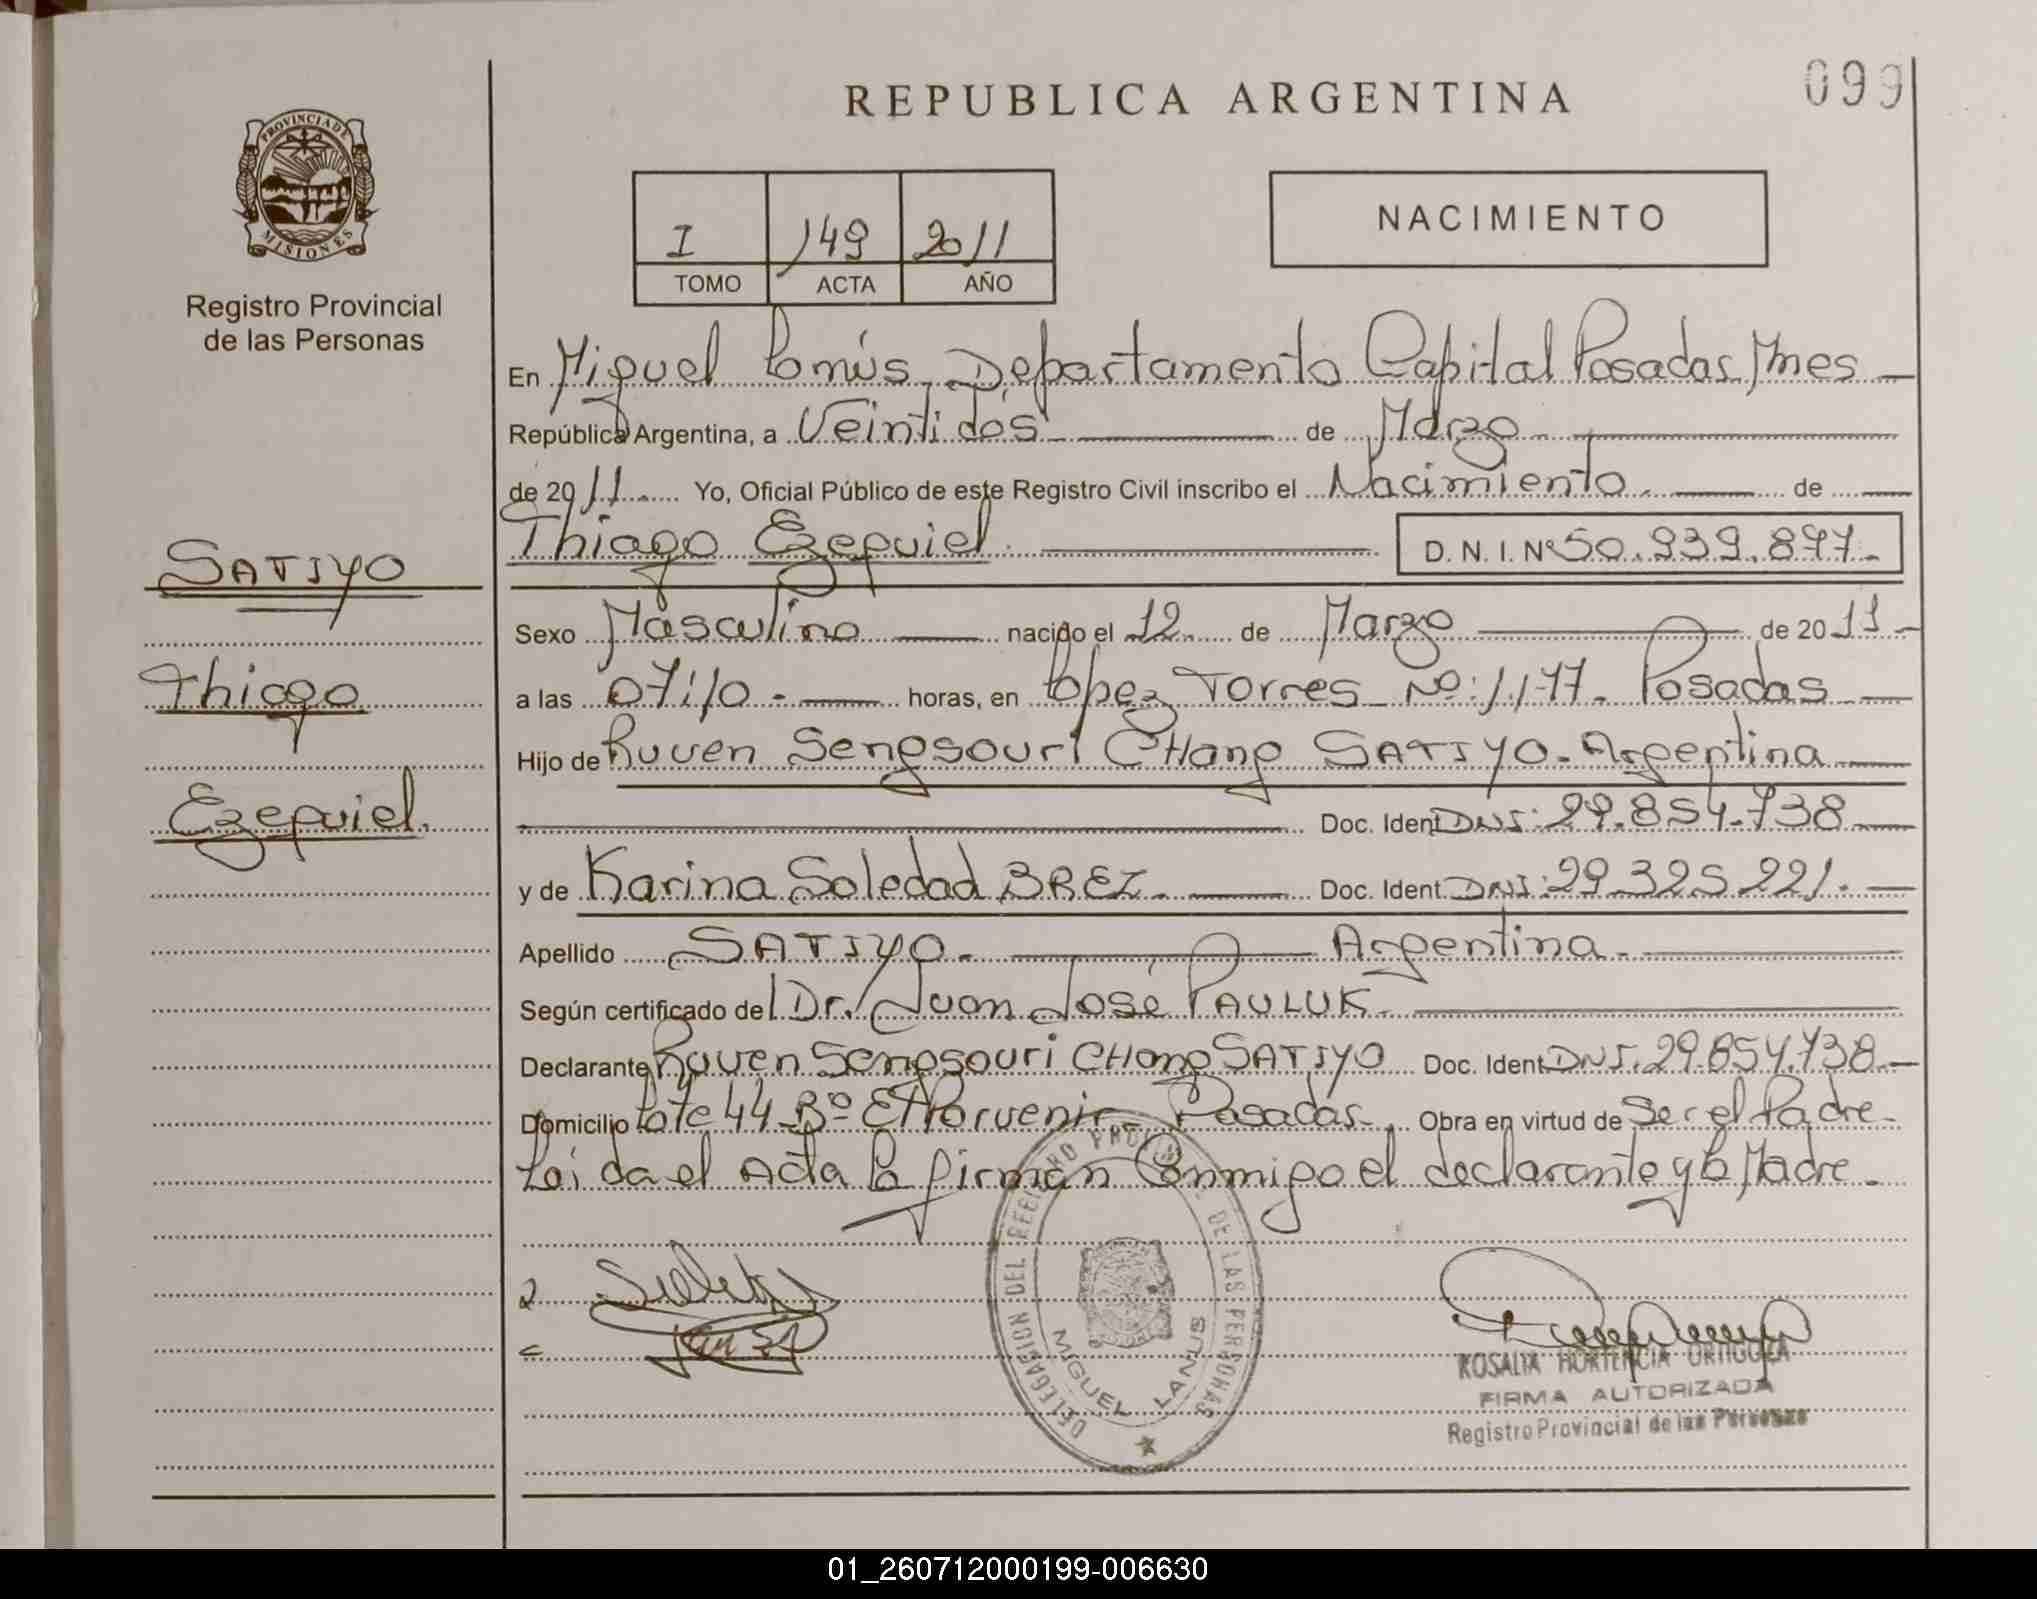 REPUBLICA ARGENTINA
099
PROVINCIA DE
MISIONES
Registro Provincial
de las Personas
I 149 2011
TOMO ACTA AÑO
NACIMIENTO
En Miguel Lanús, Departamento Capital Posadas, Mnes
República Argentina, a Veintidós de Marzo
de 2011 Yo, Oficial Público de este Registro Civil inscribo el Nacimiento de
Thiago Ezequiel. D. N. I. Nº 50.939.877.
SATIYO
Thiago
Ezequiel.
Sexo Masculino nacido el 12 de Marzo de 2011
a las 07:10 horas, en López Torres Nº: 1177. Posadas
Hijo de Ruven Sengsouri CHang SATIYO. Argentina
Doc. Ident. DNI: 29.854.738
y de Karina Soledad BREZ. Doc. Ident. DNI: 29.325.221.
Apellido SATIYO. Argentina.
Según certificado del Dr. Juan José PAULUK.
Declarante Ruven Sengsouri CHang SATIYO Doc. Ident. DNI. 29.854.738.
Domicilio Lote 44 Bº El Porvenir Posadas. Obra en virtud de Ser el Padre
Leída el Acta la firman Conmigo el declarante y la Madre.
DELEGACION DEL REGISTRO PROVINCIAL DE LAS PERSONAS
MIGUEL LANUS
ROSALIA HORTENCIA ORTIGOZA
FIRMA AUTORIZADA
Registro Provincial de las Personas
01_260712000199-006630